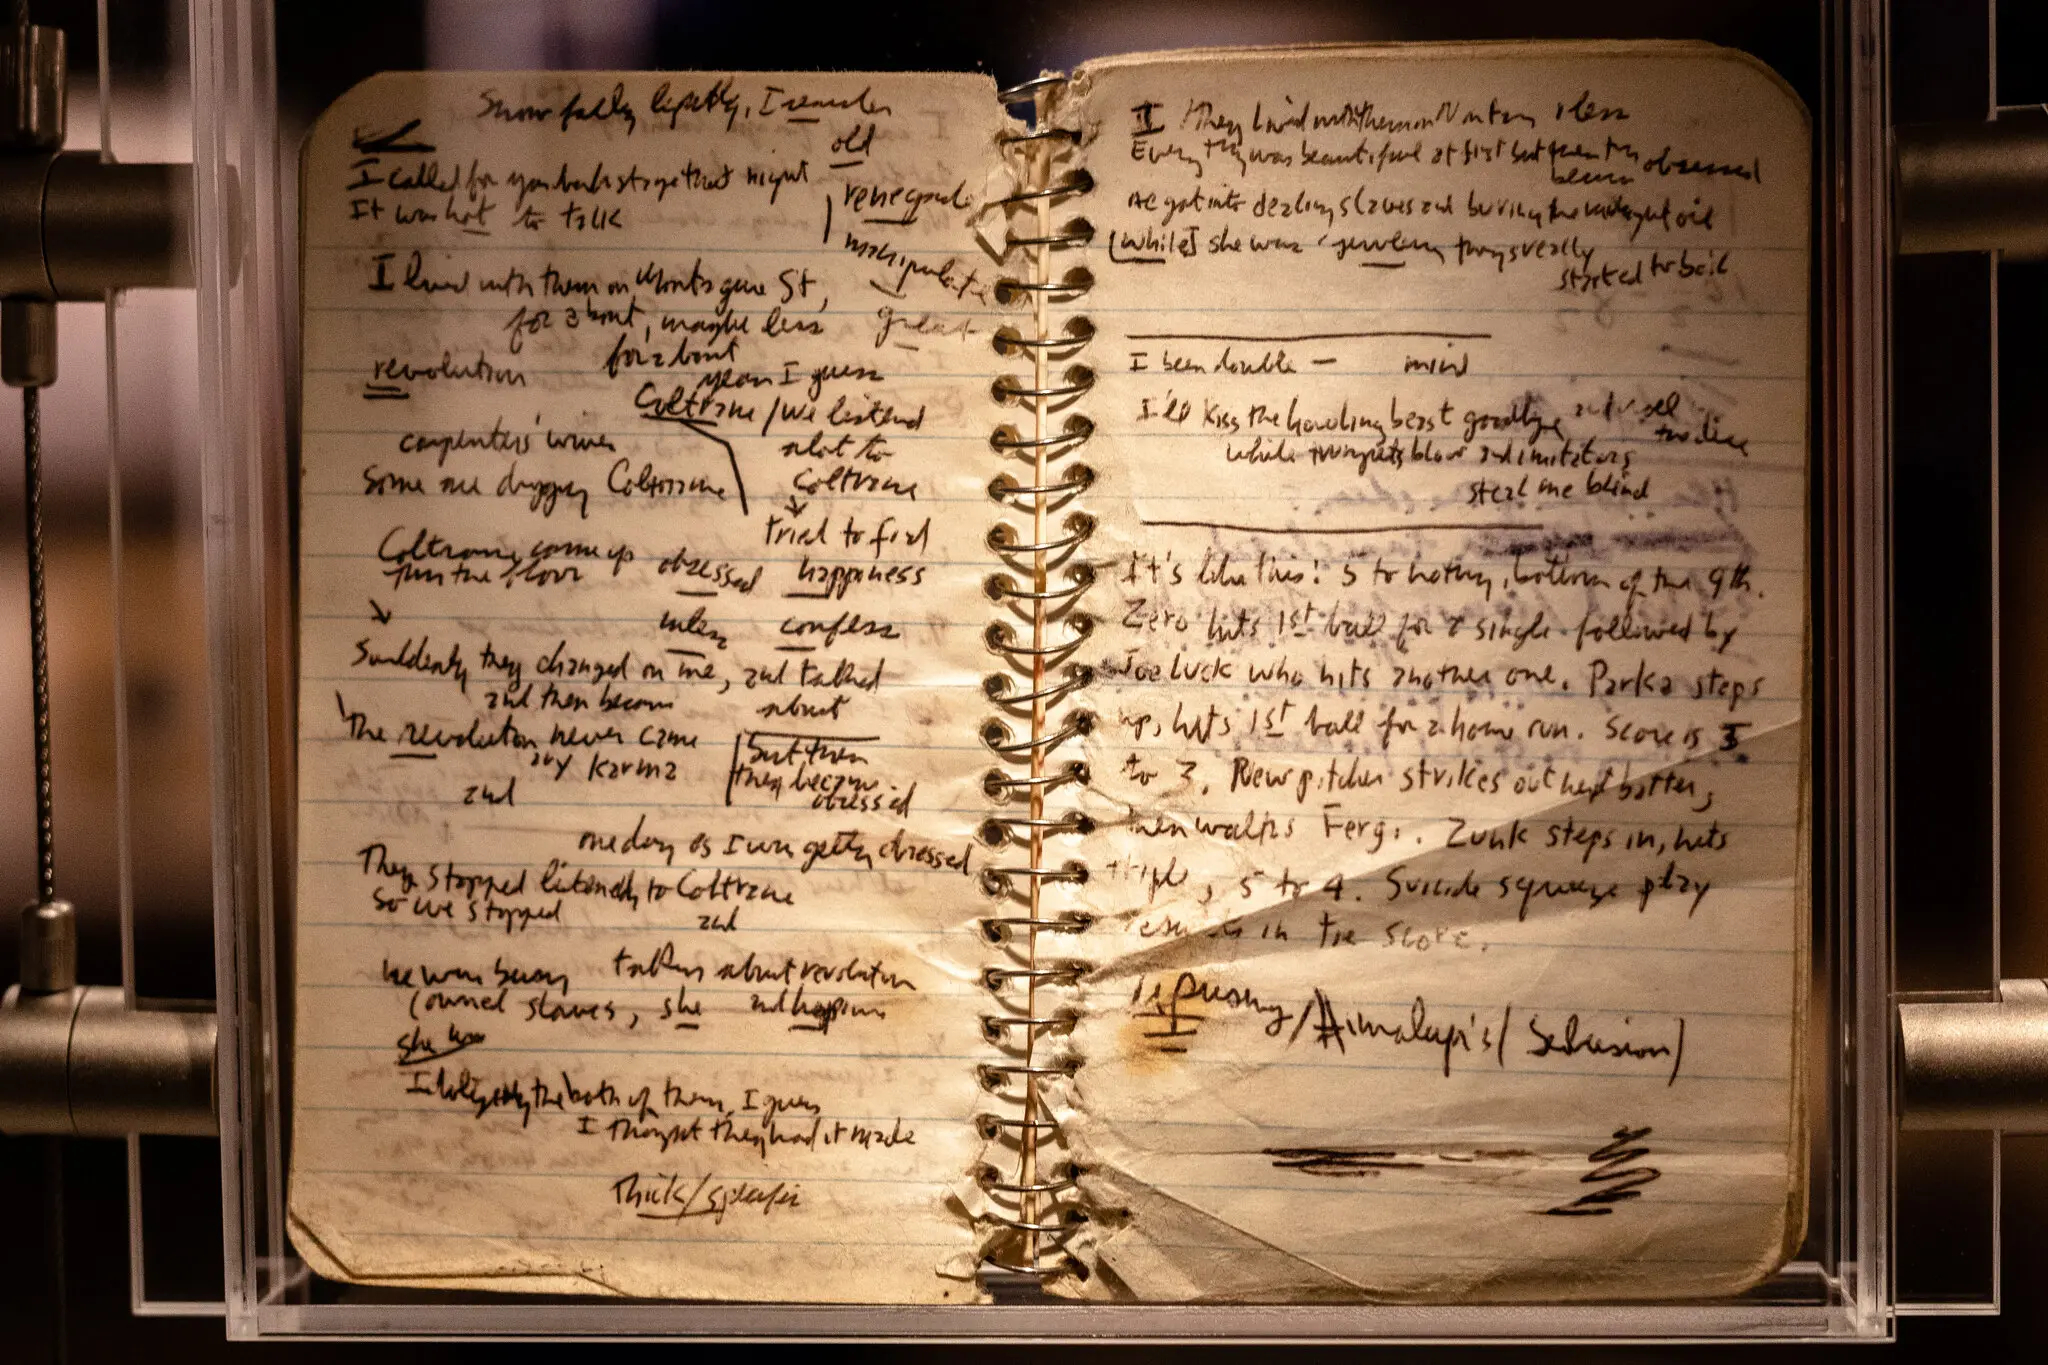 Snow falling lightly, I
old
I called for you backstage that night
renegade
It was hot to talk
manipulate
I lived with them on Montague St,
for about, maybe less
great
for about
revolution
year I guess
Coltrane / we listend
carpenters' wives
alot to
Some one digging Coltrane
Coltrane
tried to find
Coltrane come up
thru the floor
obsessed happiness
confess
Suddenly they changed on me, and talked
and then became about
The revolution never came
but then
any karma
they became
and
obsessed
one day as I was getting dressed
They stopped listening to Coltrane
So we stopped and
talking about revolution
(owned slaves, she and
she was
the both of them, I guess
I thought they had it made
Thick/
I they lived with them on
Everything was beautiful at first but then they obsessed
became
He got into dealing slaves and burning the midnight oil
[while] she was things really
started to boil
I been double – mind
I'll kiss the howling beast goodbye
while trumpets blow and imitators
steal me blind
It's like this: 5 to nothing, bottom of the 9th.
Zero hits 1st ball for a single followed by
Joe Luck who hits another one. Parka steps
up, hits 1st ball for a home run. Score is 5
to 3. New pitcher strikes out next batter,
then walks Fergi. Zunk steps in, hits
triple, 5 to 4. Suicide squeeze play
results in tie score.